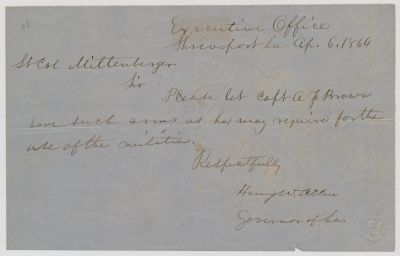 Executive Office
Shreveport La Ap. 6. 1864
Lt Col Miltenberger
Sir
Please let Capt A J Brown
have such arms as he may require for the
use of the militia.
Respectfully
Henry W. Allen
Governor of La